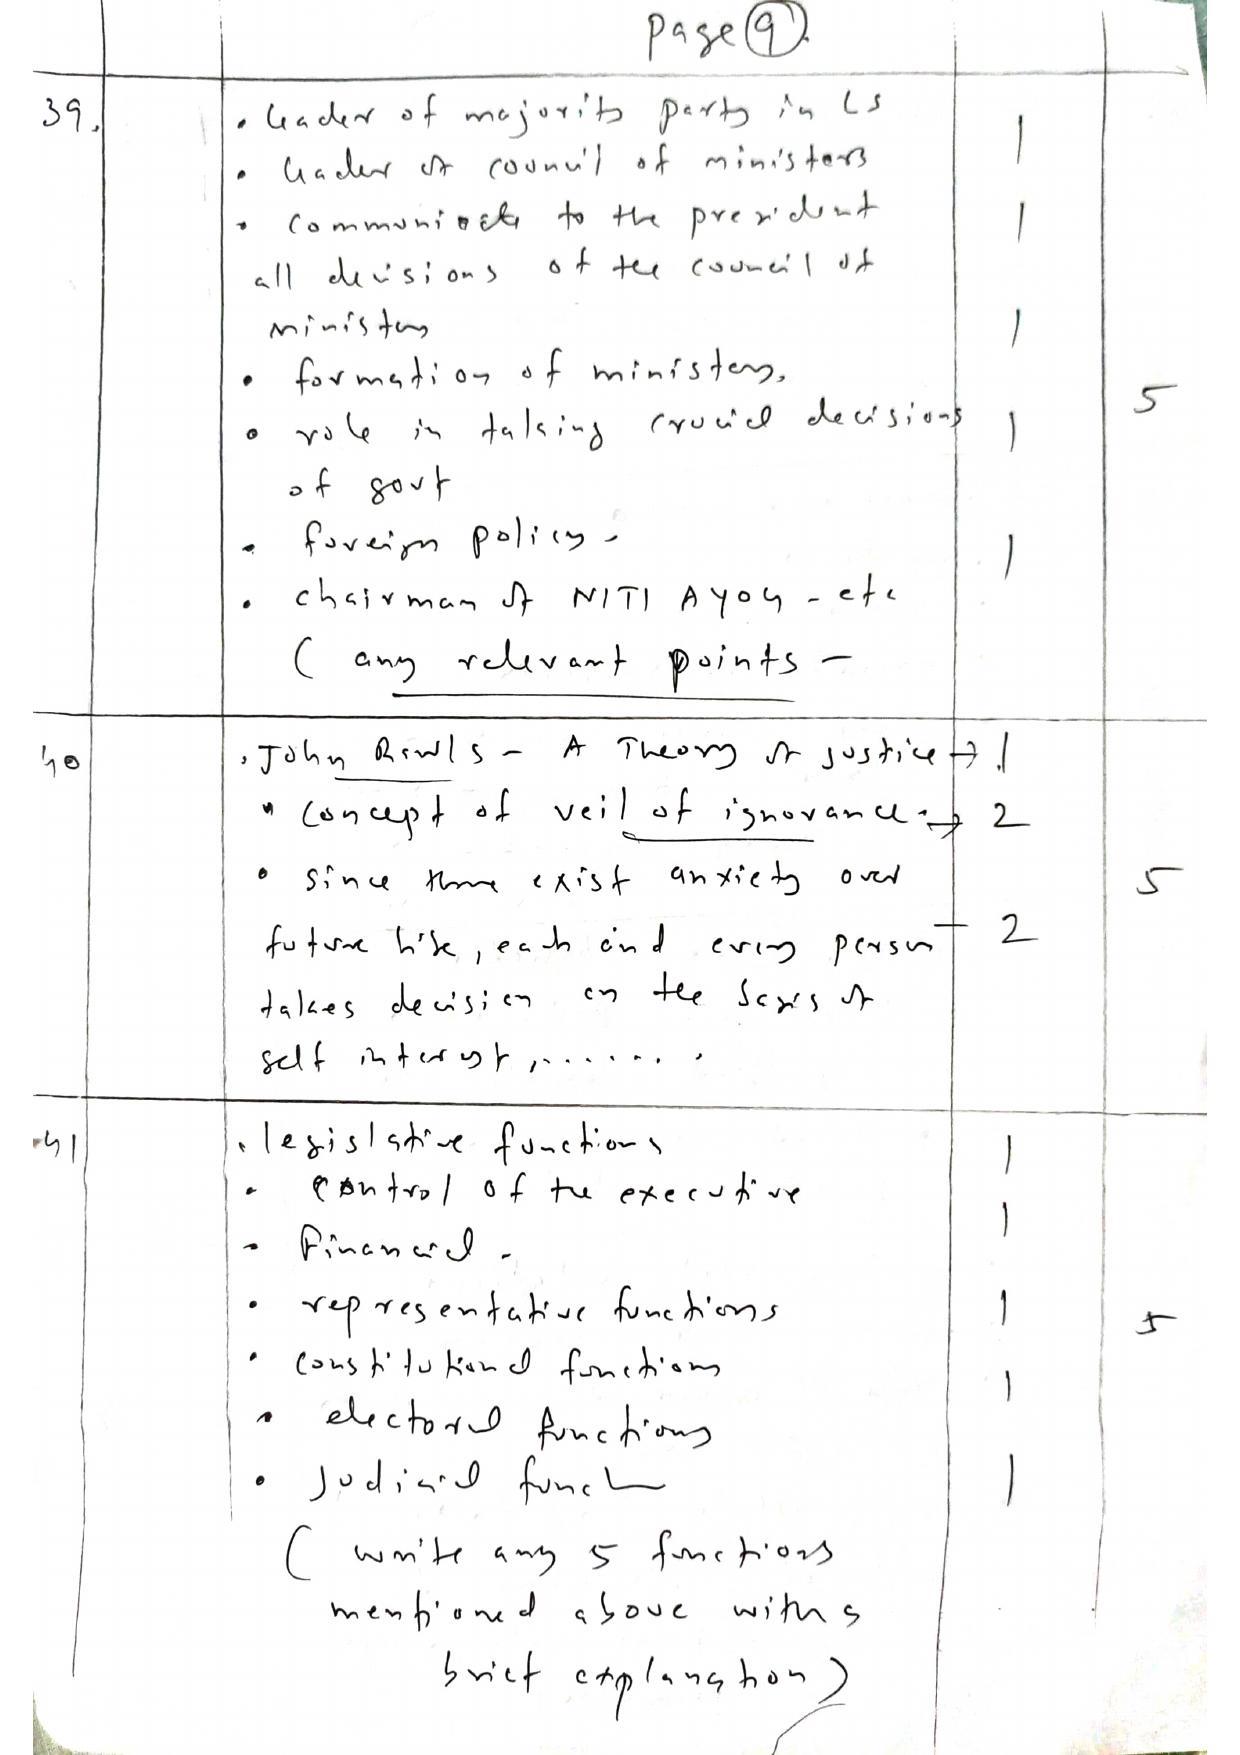 Page 9.
39.
• Leader of majority party in LS 1
• Leader of council of ministers
• Communicate to the president 1
all decisions of the council of
ministers 1
• formation of ministers.
• role in taking crucial decisions 1
of govt 5
• foreign policy - 1
• chairman of NITI AYOG - etc
( any relevant points -
40
• John Rawls - A Theory of justice → 1
• Concept of veil of ignorance → 2
• since there exist anxiety over 5
future life, each and every person - 2
takes decision on the basis of
self interest, ......
41
• legislative functions 1
• control of the executive
• Financial - 1
• representative functions 1 5
• constitutional functions 1
• electoral functions
• Judicial funct 1
( write any 5 functions
mentioned above with a
brief explanation)